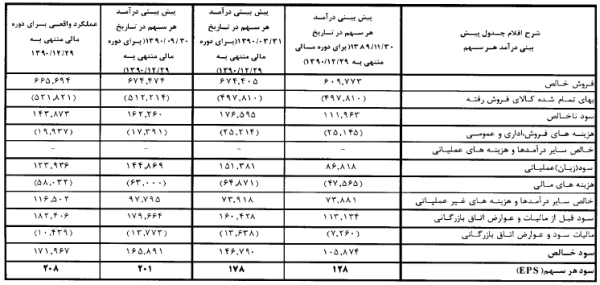 شرح اقلام جدول پیش بینی درآمد هر سهم | پیش بینی درآمد هر سهم در تاریخ ۱۳۸۹/۱۱/۳۰(برای دوره مالی منتهی به ۱۳۹۰/۱۲/۲۹) | پیش بینی درآمد هر سهم در تاریخ ۱۳۹۰/۰۳/۳۱(برای دوره مالی منتهی به ۱۳۹۰/۱۲/۲۹) | پیش بینی درآمد هر سهم در تاریخ ۱۳۹۰/۰۹/۳۰(برای دوره مالی منتهی به ۱۳۹۰/۱۲/۲۹) | عملکرد واقعی برای دوره مالی منتهی به ۱۳۹۰/۱۲/۲۹
فروش خالص | ۶۰۹,۷۷۳ | ۶۷۴,۴۰۵ | ۶۷۴,۴۷۴ | ۶۶۵,۶۹۴
بهای تمام شده کالای فروش رفته | (۴۹۷,۸۱۰) | (۴۹۷,۸۱۰) | (۵۱۲,۲۱۴) | (۵۲۱,۸۲۱)
سود ناخالص | ۱۱۱,۹۶۳ | ۱۷۶,۵۹۵ | ۱۶۲,۲۶۰ | ۱۴۳,۸۷۳
هزینه های فروش،اداری و عمومی | (۲۵,۱۴۵) | (۲۵,۲۱۴) | (۱۷,۳۹۱) | (۱۹,۹۳۷)
خالص سایر درآمدها و هزینه های عملیاتی | - | - | - | -
سود(زیان)عملیاتی | ۸۶,۸۱۸ | ۱۵۱,۳۸۱ | ۱۴۴,۸۶۹ | ۱۲۳,۹۳۶
هزینه های مالی | (۴۷,۵۶۵) | (۶۴,۸۷۱) | (۶۳,۰۰۰) | (۵۸,۰۳۲)
خالص سایر درآمدها و هزینه های غیر عملیاتی | ۷۳,۸۸۱ | ۷۳,۹۱۸ | ۹۷,۷۹۵ | ۱۱۶,۵۰۲
سود قبل از مالیات و عوارض اتاق بازرگانی | ۱۱۳,۱۳۴ | ۱۶۰,۴۲۸ | ۱۷۹,۶۶۴ | ۱۸۲,۴۰۶
مالیات سود و عوارض اتاق بازرگانی | (۷,۲۶۰) | (۱۳,۶۳۸) | (۱۳,۷۷۳) | (۱۰,۴۳۹)
سود خالص | ۱۰۵,۸۷۴ | ۱۴۶,۷۹۰ | ۱۶۵,۸۹۱ | ۱۷۱,۹۶۷
سود هر سهم(EPS) | ۱۲۸ | ۱۷۸ | ۲۰۱ | ۲۰۸